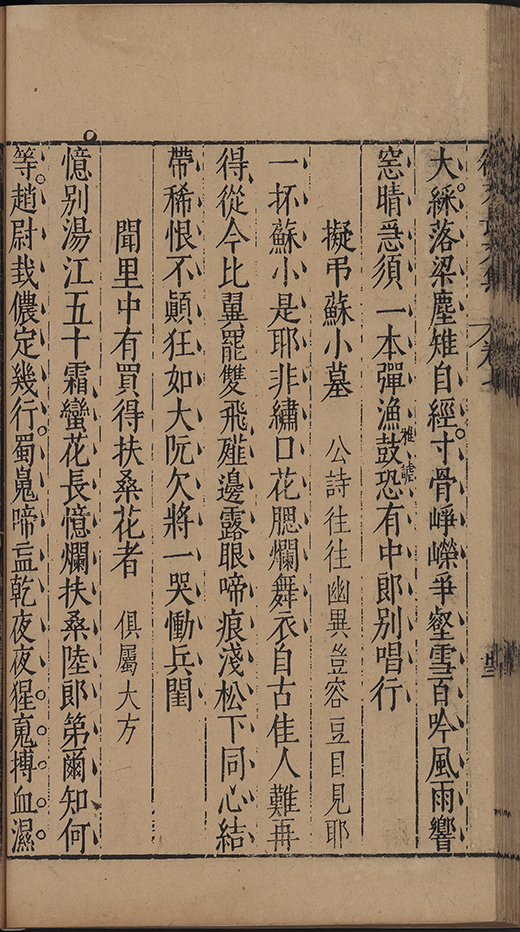 大綵落梁塵雉自經寸骨崢嶸爭壑雪百吟風雨響
窓晴急須一本彈漁鼓恐有中郎別唱行
雅謔
擬弔蘇小墓 公詩往往幽異豈容豆目見耶
一抔蘇小是耶非繡口花腮爛舞衣自古佳人難再
得從今比翼罷雙飛薤邊露眼啼痕淺松下同心結
帶稀恨不顛狂如大阮欠將一哭慟兵閨
聞里中有買得扶桑花者 俱屬大方
憶別湯江五十霜蠻花長憶爛扶桑陸郎第爾知何
等趙尉栽儂定幾行蜀鬼啼盂乾夜夜猩𩲸搏血濕